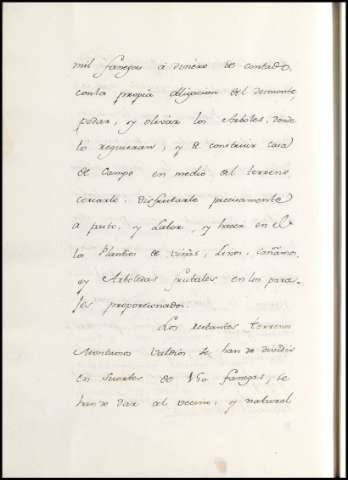 mil fanegas á dinero de contado,
con la propia obligacion del desmonte,
podar, y olivar los Arboles, donde
lo requieran, y de construir casa
de Campo en medio del terreno
cercarle disfrutarle precisamente
a pasto, y Labor, y hacer en el
la Plantíos de viñas, Linos, Cañamo,
y Arboledas frutales en los para-
jes proporcionados.
Los restantes terrenos
Montuosos valdíos se han de dividir
en suertes de 150 fanegas, se
han de dar al vecino, y natural